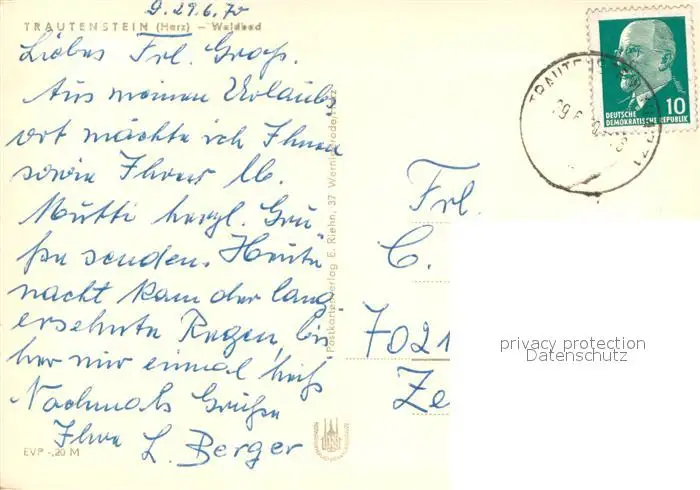 D. 29.6.70
TRAUTENSTEIN (Harz) – Waldbad
Liebes Frl. Groß.
Aus meinem Urlaubs
ort möchte ich Ihnen
sowie Ihrer lb.
Mutti herzl. Grü-
ße senden. Heute
nacht kam der lang
ersehnte Regen, bis
her nur einmal heiß
Nochmals Grüße
Ihre L. Berger
EVP -,20 M
Postkartenverlag E. Riehn, 37 Wernigerode/Harz
10
DEUTSCHE
DEMOKRATISCHE REPUBLIK
Frl.
C.
7021
Ze
privacy protection
Datenschutz